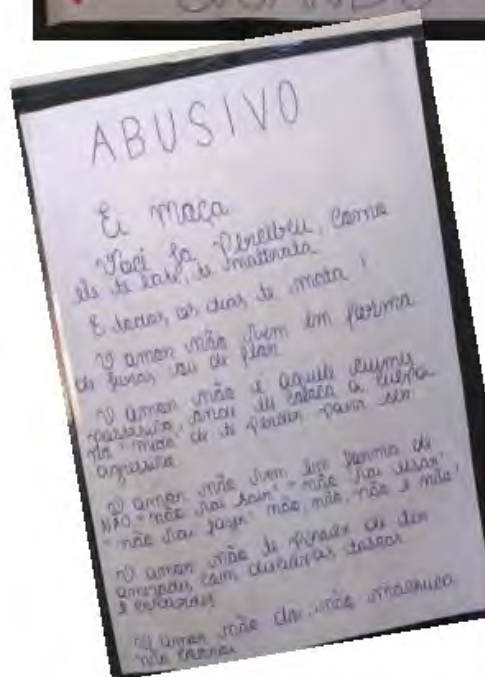 ABUSIVO
Ei moça
Você já Percebeu, como
ele te bate, te maltrata
E todos, os dias te mata!
O amor não vem em forma
de ou de flor
O amor não é aquele ciume
possessivo, onde ele coloca a culpa
no "medo" de te perder para ser
agressivo
O amor não vem em forma de
NÃO = "não vai sair" = "não vai usar"
"não vai fazer" não, não, não e não!
O amor não te de ter
amizades com
e
O amor não doi, não machuca
não